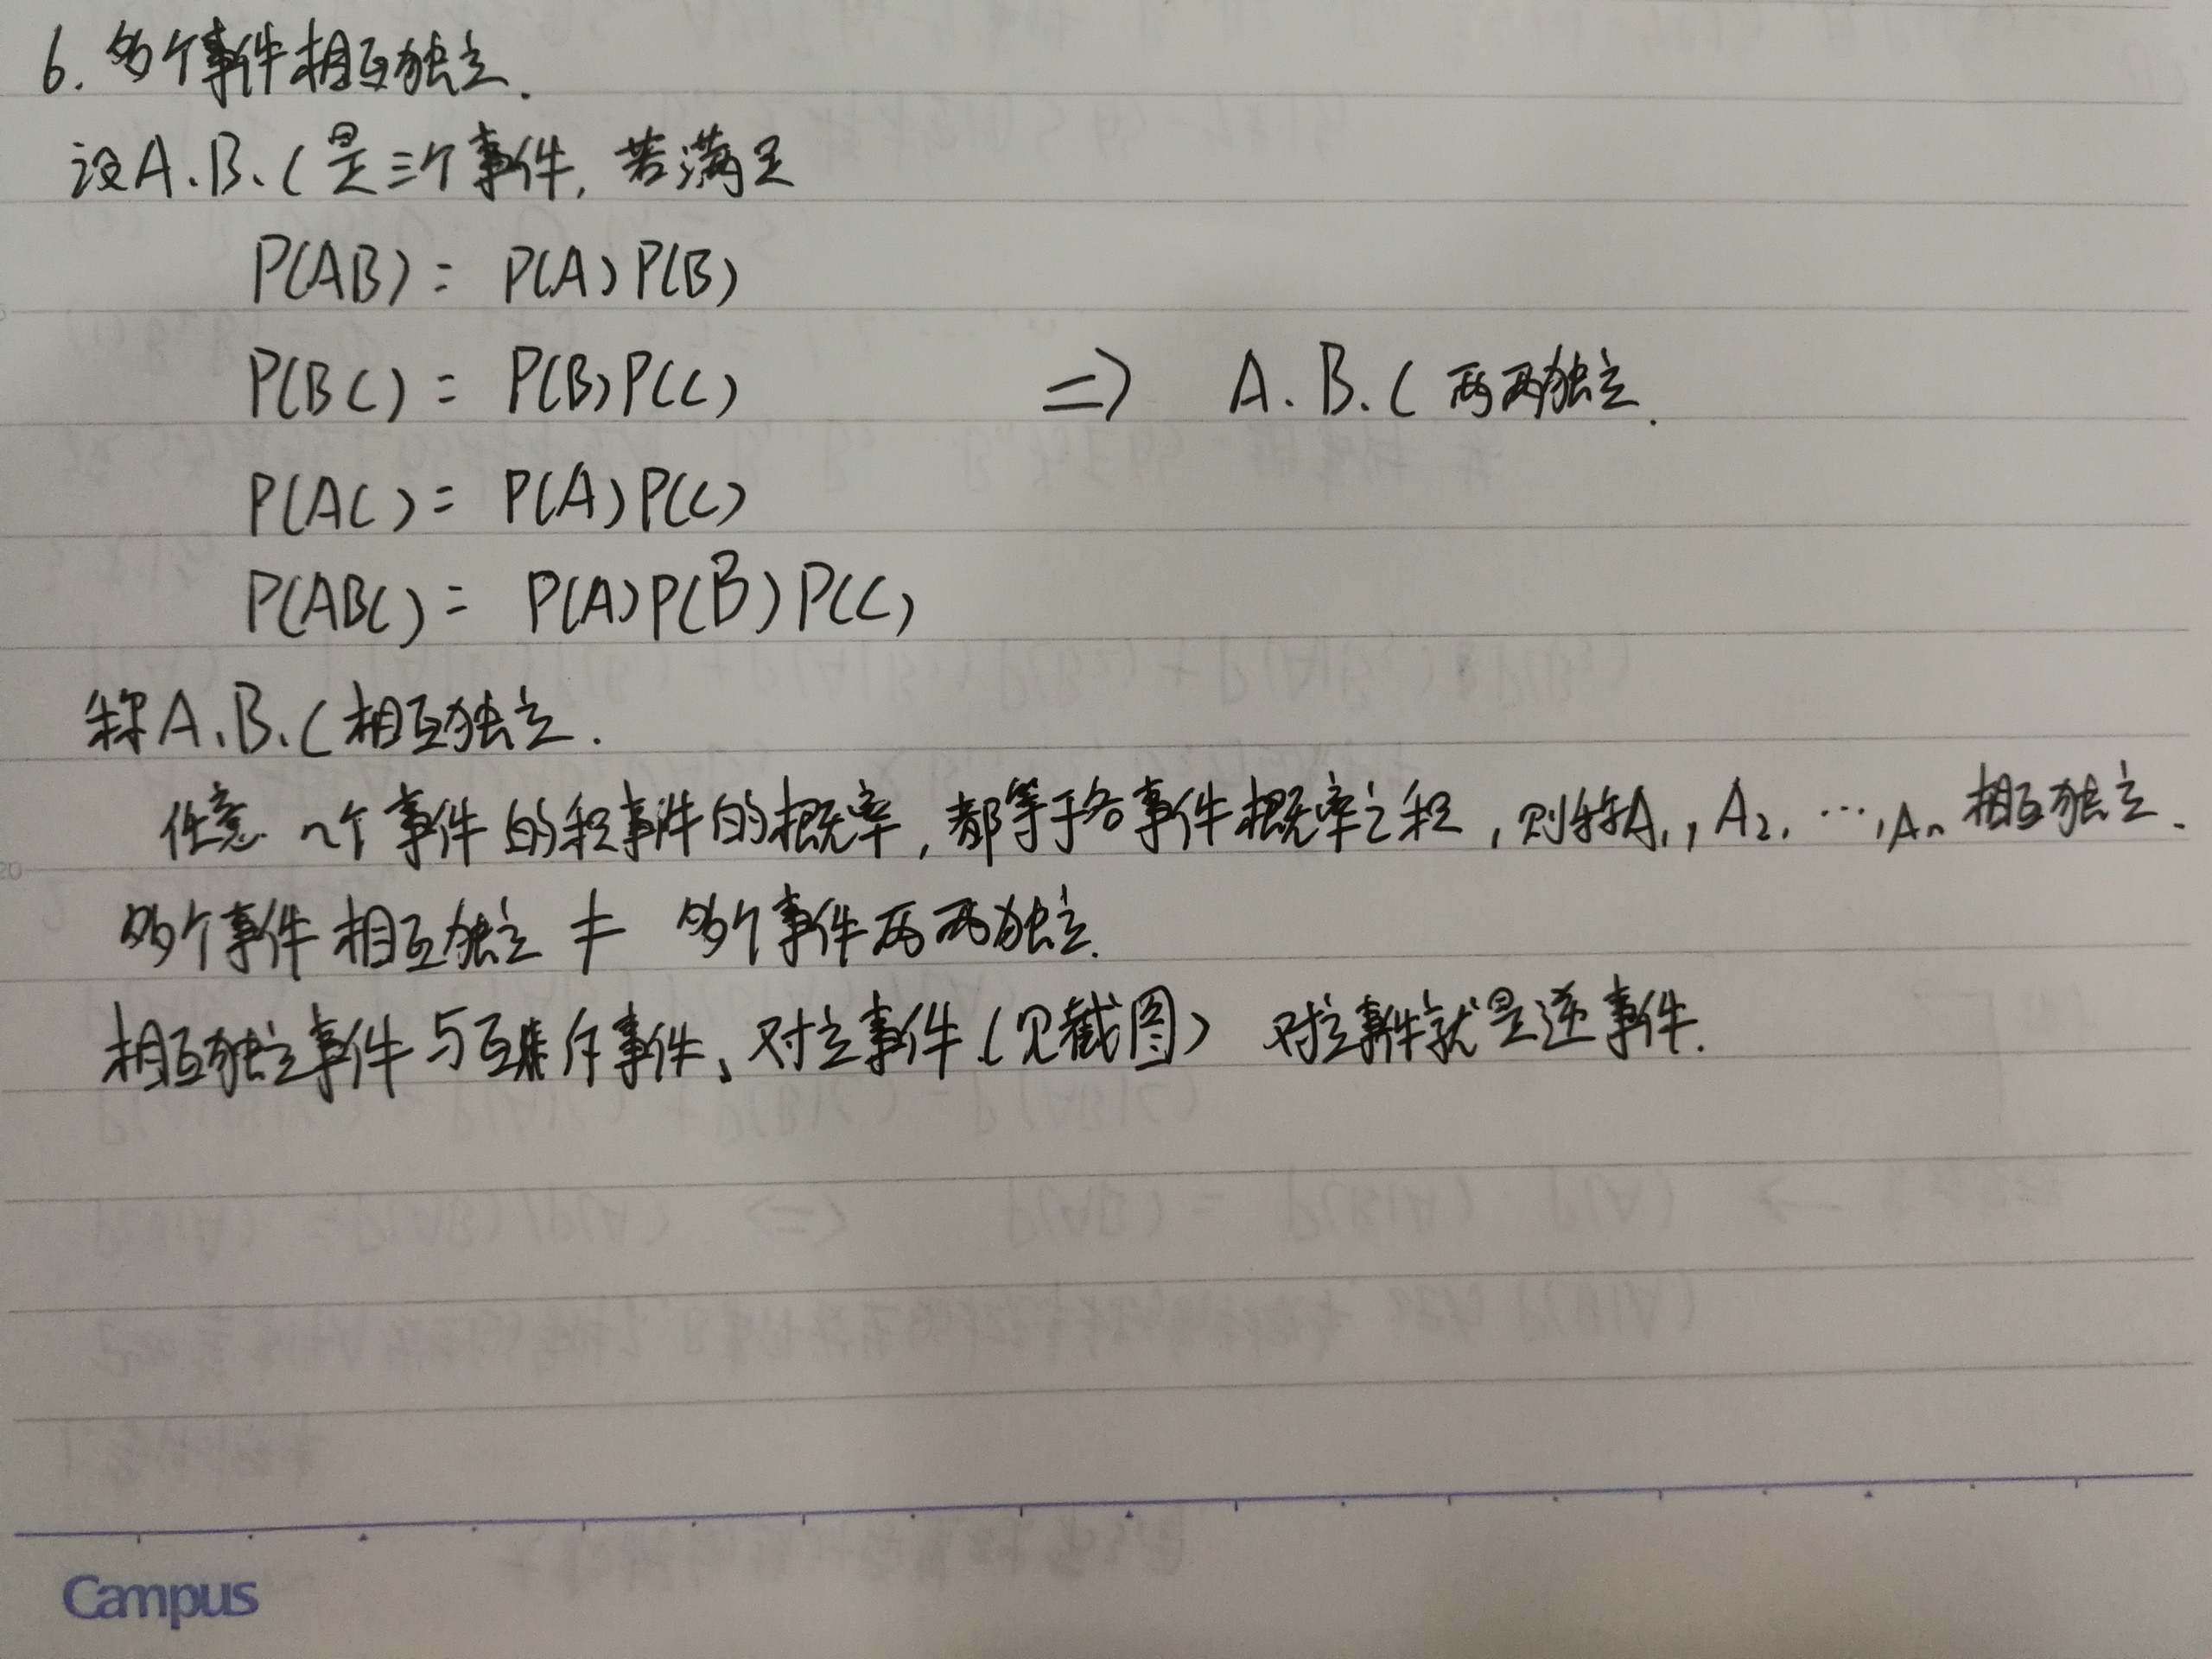 6. 多个事件相互独立.
设A、B、C是三个事件, 若满足
P(AB) = P(A)P(B)
P(BC) = P(B)P(C) => A.B.C 两两独立.
P(AC) = P(A)P(C)
P(ABC) = P(A)P(B)P(C)
称A、B、C相互独立.
任意 n个事件的积事件的概率, 都等于各事件概率之积, 则称A₁, A₂, …, Aₙ 相互独立.
多个事件相互独立 ≠ 多个事件两两独立.
相互独立事件与互斥事件、对立事件(见截图) 对立事件就是逆事件.
Campus